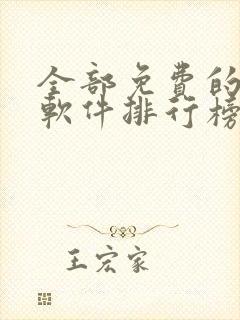 全部免費的
軟件排行榜
王宏家